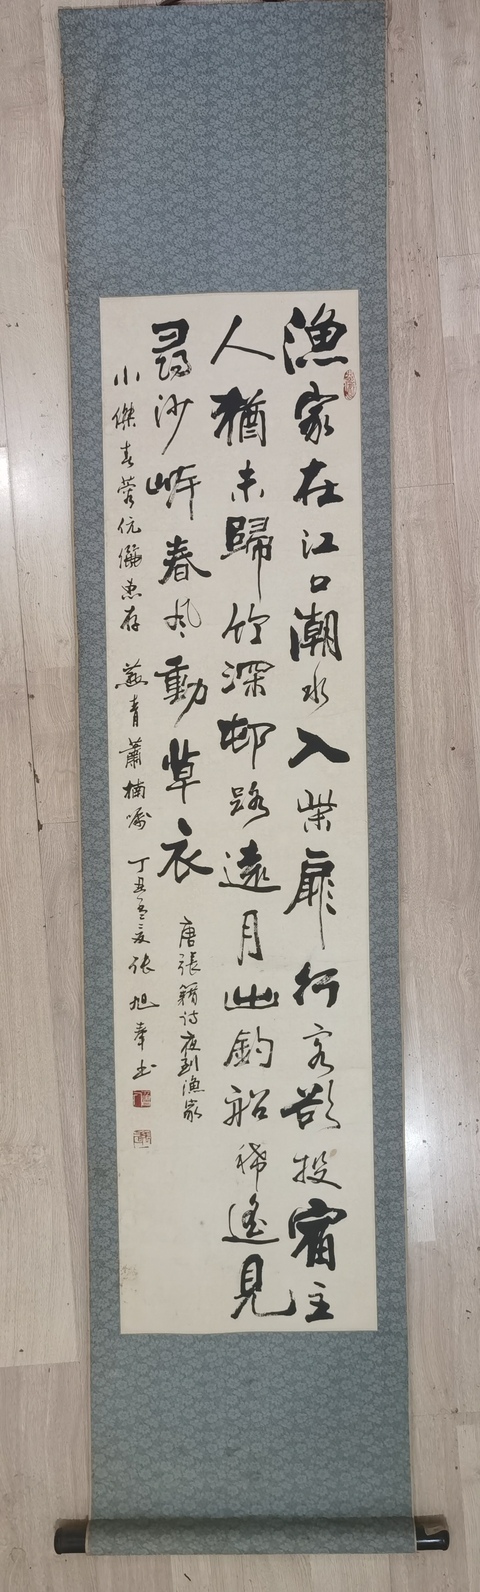 漁家在江口潮水入柴扉行客欲投宿主
人猶未歸竹深邨路遠月出釣船稀遙見
尋沙岸春風動草衣
唐張籍詩夜到漁家
小傑春蓉伉儷惠存 蕭楠囑 丁丑 張旭奉书